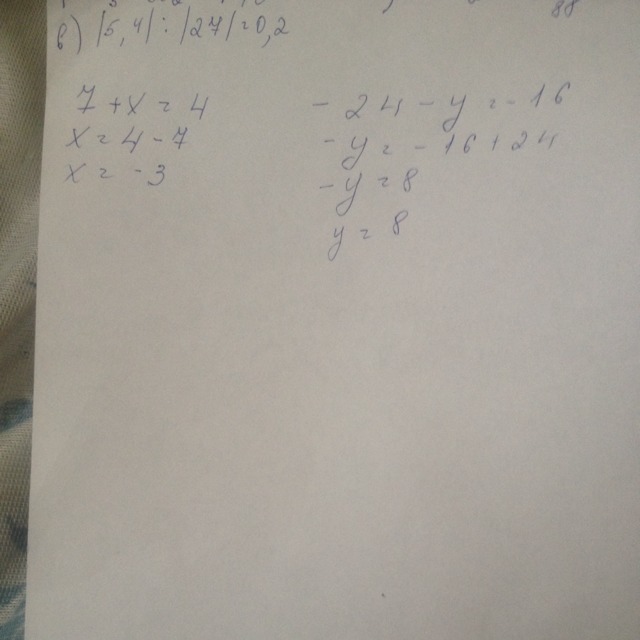 в) |5,4| : |27| = 0,2
7 + x = 4
x = 4 - 7
x = -3
- 24 - y = -16
- y = -16 + 24
- y = 8
y = 8